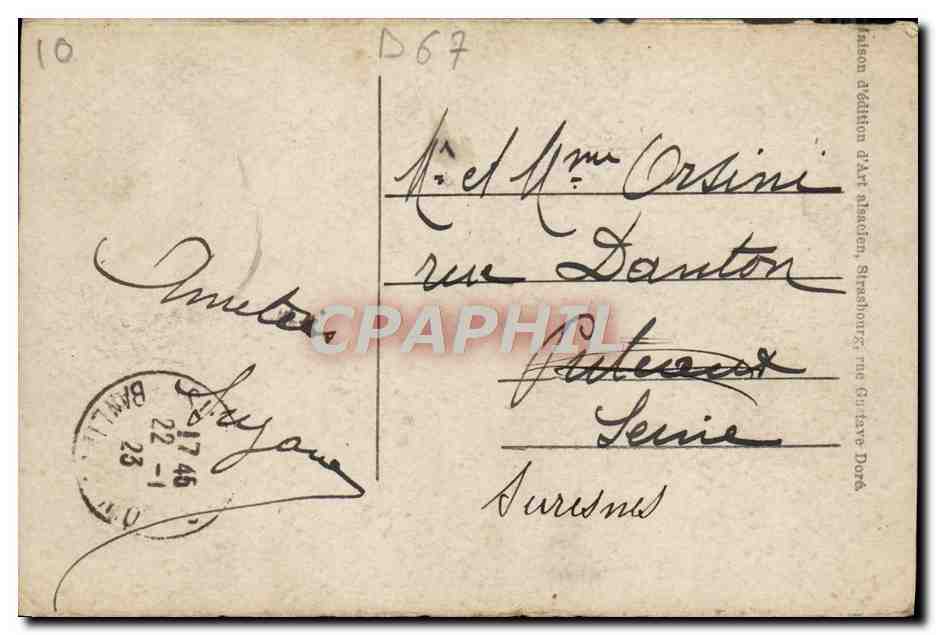 10
D67
Mr et Mme Orsini
rue Danton
Puteaux
Seine
Suresnes
Amities
Suzanne
17 45
22 - 1
23
BANLIEUE
CPAPHIL
Maison d'édition d'Art alsacien, Strasbourg, rue Gustave Doré.